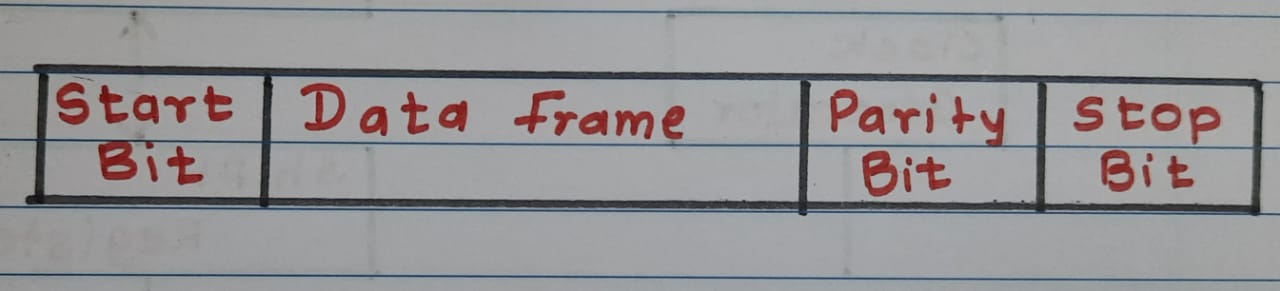 Start Bit
Data Frame
Parity Bit
Stop Bit